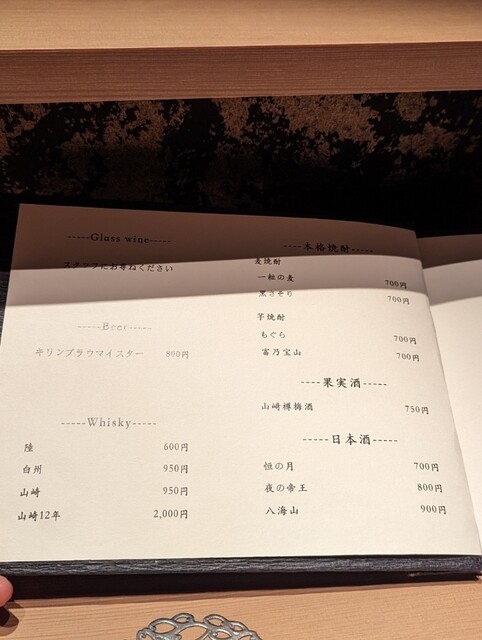 -----Glass wine-----
スタッフにお尋ねください
-----Beer-----
キリンブラウマイスター 800円
-----Whisky-----
陸 600円
白州 950円
山崎 950円
山崎12年 2,000円
-----本格焼酎-----
麦焼酎
一粒の麦 700円
黒さそり 700円
芋焼酎
もぐら 700円
富乃宝山 700円
----果実酒-----
山崎樽梅酒 750円
-----日本酒-----
恒の月 700円
夜の帝王 800円
八海山 900円